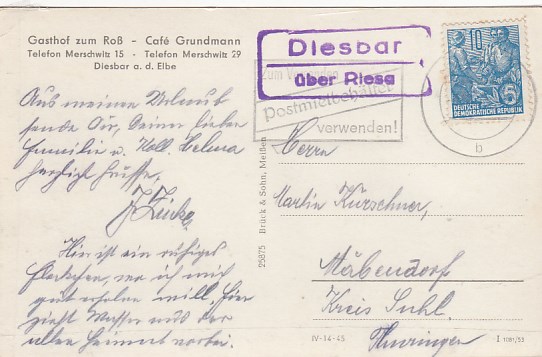 Gasthof zum Roß - Café Grundmann
Telefon Merschwitz 15 · Telefon Merschwitz 29
Diesbar a. d. Elbe
Aus meinem Urlaub
sende Dir, Deiner lieben
Familie u. Koll.
herzliche Grüsse.
Hier ist ein ruhiges
Fleckchen, wo ich mich
gut erholen will. Hier
zieht Wasser aus der
alten Heimat vorbei.
25875 Brück & Sohn, Meißen
Diesbar
über Riesa
Zum
Postmietbehälter
verwenden!
10
5
DEUTSCHE
DEMOKRATISCHE REPUBLIK
b
Herrn
Martin Kürschner,
Mäbendorf
Kreis Suhl.
Thüringen
IV-14-45
I 1081/55